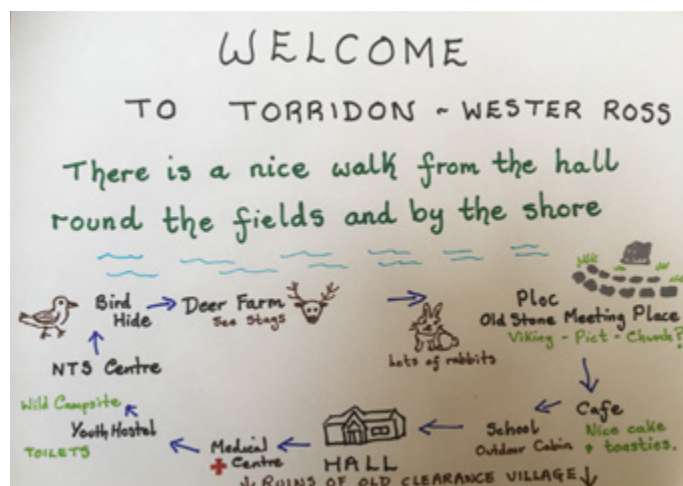 WELCOME
TO TORRIDON ~ WESTER ROSS
There is a nice walk from the hall
round the fields and by the shore
Bird
Hide
Deer Farm
See Stags
Lots of rabbits
Ploc
Old Stone Meeting Place
Viking - Pict - Church?
NTS Centre
Wild Campsite
Youth Hostel
TOILETS
Medical
Centre
HALL
School
Outdoor Cabin
Cafe
Nice cake
+ toasties.
RUINS OF OLD CLEARANCE VILLAGE